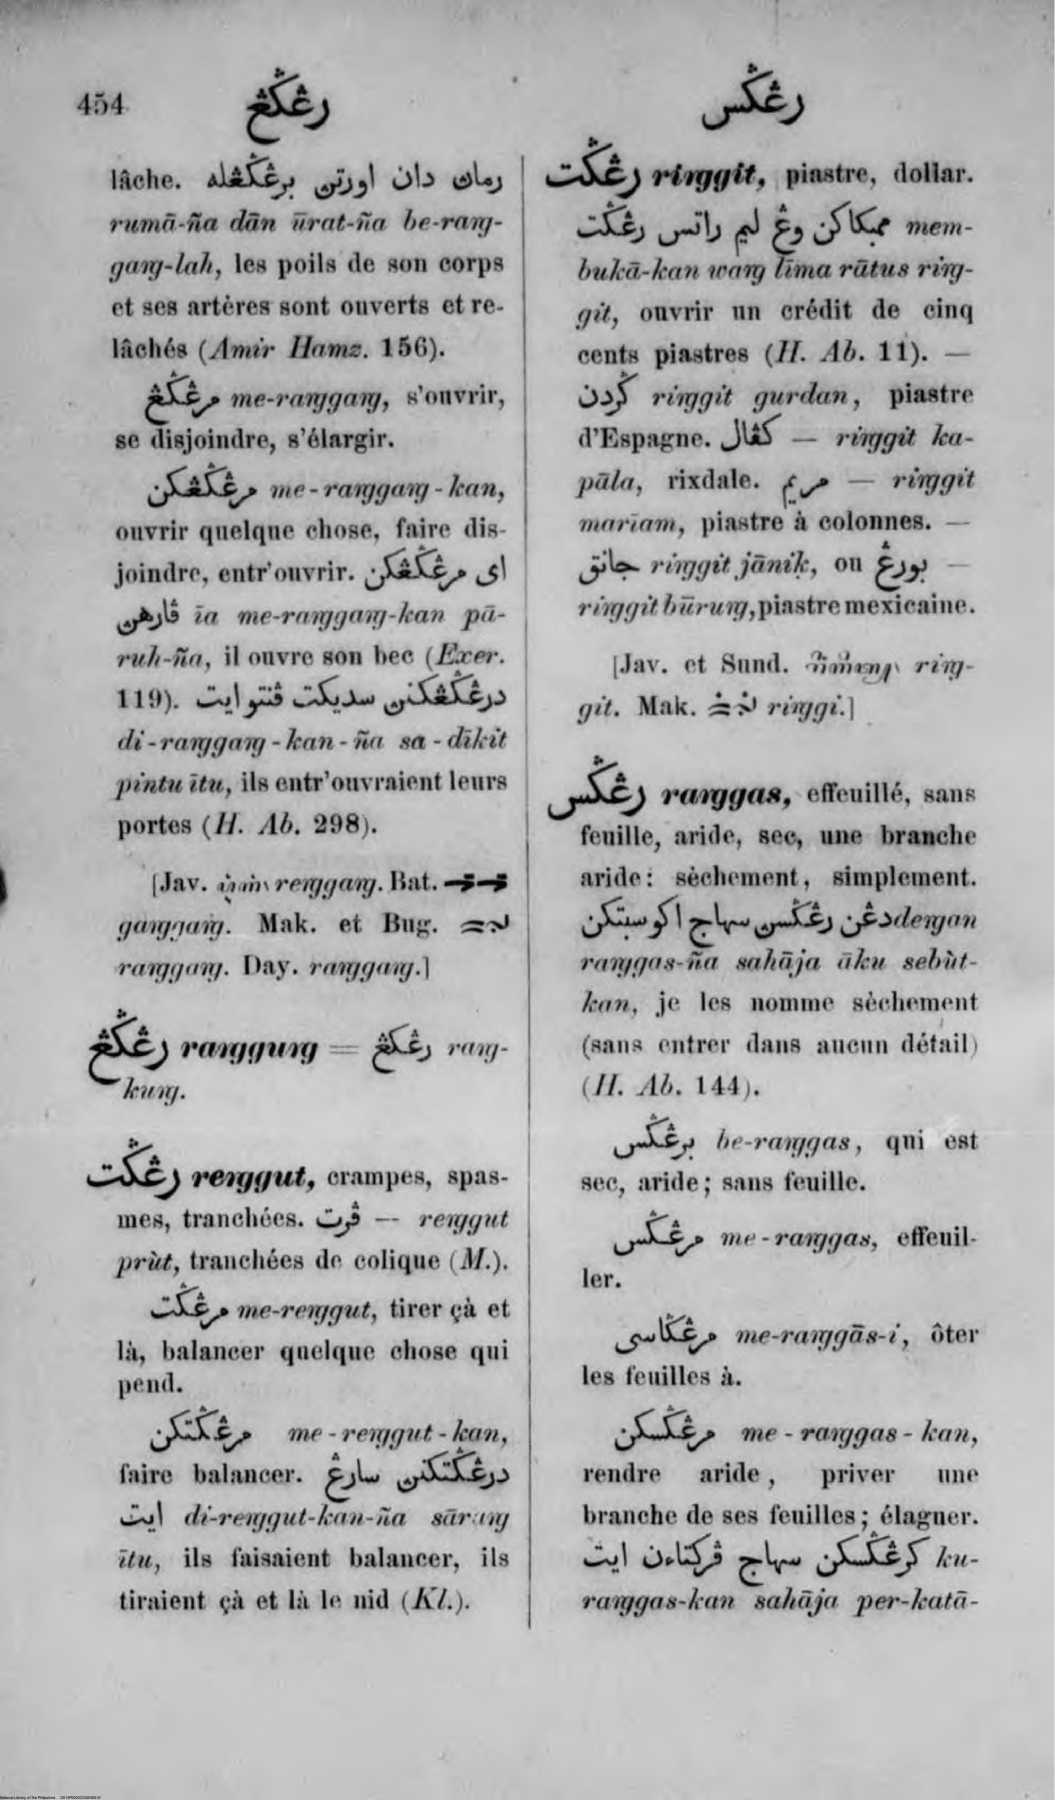 454
رڠݢڠ
رڠݢس
lâche. رمان دان اورتن برڠݢڠله
rumā-ña dān ūrat-ña be-raŋg-
gaŋg-lah, les poils de son corps
et ses artères sont ouverts et re-
lâchés (Amir Hamz. 156).
مرڠݢڠ me-raŋggaŋg, s'ouvrir,
se disjoindre, s'élargir.
مرڠݢڠكن me-raŋggaŋg-kan,
ouvrir quelque chose, faire dis-
joindre, entr'ouvrir. اى مرڠݢڠكن
ڤارهن īa me-raŋggaŋg-kan pā-
ruh-ña, il ouvre son bec (Exer.
119). درڠݢڠكنن سديكت ڤنتو ايت
di-raŋggaŋg-kan-ña sa-dīkit
pintu ītu, ils entr'ouvraient leurs
portes (H. Ab. 298).
[Jav. reŋggaŋg. Bat.
gaŋggaŋg. Mak. et Bug.
raŋggaŋg. Day. raŋggaŋg.]
رڠݢڠ raŋgguŋg = رڠكڠ raŋg-
kuŋg.
رڠݢت reŋggut, crampes, spas-
mes, tranchées. ڤرت — reŋggut
prùt, tranchées de colique (M.).
مرڠݢت me-reŋggut, tirer çà et
là, balancer quelque chose qui
pend.
مرڠݢتكن me-reŋggut-kan,
faire balancer. درڠݢتكنن سارڠ
ايت di-reŋggut-kan-ña sāraŋg
ītu, ils faisaient balancer, ils
tiraient çà et là le nid (Kl.).
رڠݢت riŋggit, piastre, dollar.
ممبكاكن وڠ ليم راتس رڠݢت mem-
bukā-kan waŋg līma rātus riŋg-
git, ouvrir un crédit de cinq
cents piastres (H. Ab. 11). —
ݢردن riŋggit gurdan, piastre
d'Espagne. كڤال — riŋggit ka-
pāla, rixdale. مريم — riŋggit
marīam, piastre à colonnes. —
جانق riŋggit jānik̤, ou بورڠ —
riŋggit būruŋg, piastre mexicaine.
[Jav. et Sund. riŋg-
git. Mak. riŋggi.]
رڠݢس raŋggas, effeuillé, sans
feuille, aride, sec, une branche
aride: sèchement, simplement.
دڠن رڠݢسن سهاج اكو سبتكن deŋgan
raŋggas-ña sahāja āku sebùt-
kan, je les nomme sèchement
(sans entrer dans aucun détail)
(H. Ab. 144).
برڠݢس be-raŋggas, qui est
sec, aride; sans feuille.
مرڠݢس me-raŋggas, effeuil-
ler.
مرڠݢاسى me-raŋggās-i, ôter
les feuilles à.
مرڠݢسكن me-raŋggas-kan,
rendre aride, priver une
branche de ses feuilles; élaguer.
كرڠݢسكن سهاج ڤركتاءن ايت ku-
raŋggas-kan sahāja per-katā-